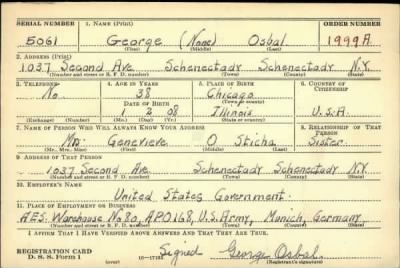 SERIAL NUMBER 1. NAME (Print) ORDER NUMBER
5061 George (None) Osbal 1999A
(First) (Middle) (Last)
2. ADDRESS (Print)
1037 Second Ave. Schenectady Schenectady N.Y.
(Number and street or R. F. D. number) (Town) (County) (State)
3. TELEPHONE 4. AGE IN YEARS 5. PLACE OF BIRTH 6. COUNTRY OF CITIZENSHIP
No 38 Chicago
DATE OF BIRTH (Town or county)
1 2 08 Illinois U.S.A.
(Exchange) (Number) (Mo.) (Day) (Yr.) (State or country)
7. NAME OF PERSON WHO WILL ALWAYS KNOW YOUR ADDRESS 8. RELATIONSHIP OF THAT PERSON
Genevieve O Sticha Sister
(Mr., Mrs., Miss) (First) (Middle) (Last)
9. ADDRESS OF THAT PERSON
1037 Second Ave. Schenectady Schenectady N.Y.
(Number and street or R. F. D. number) (Town) (County) (State)
10. EMPLOYER'S NAME
United States Government.
11. PLACE OF EMPLOYMENT OR BUSINESS
AES. Warehouse No 80, APO 168, U.S. Army, Munich, Germany
(Number and street or R. F. D. number) (Town) (County) (State)
I AFFIRM THAT I HAVE VERIFIED ABOVE ANSWERS AND THAT THEY ARE TRUE.
REGISTRATION CARD
D. S. S. Form 1 (over) Signed George Osbal
(Registrant's signature)